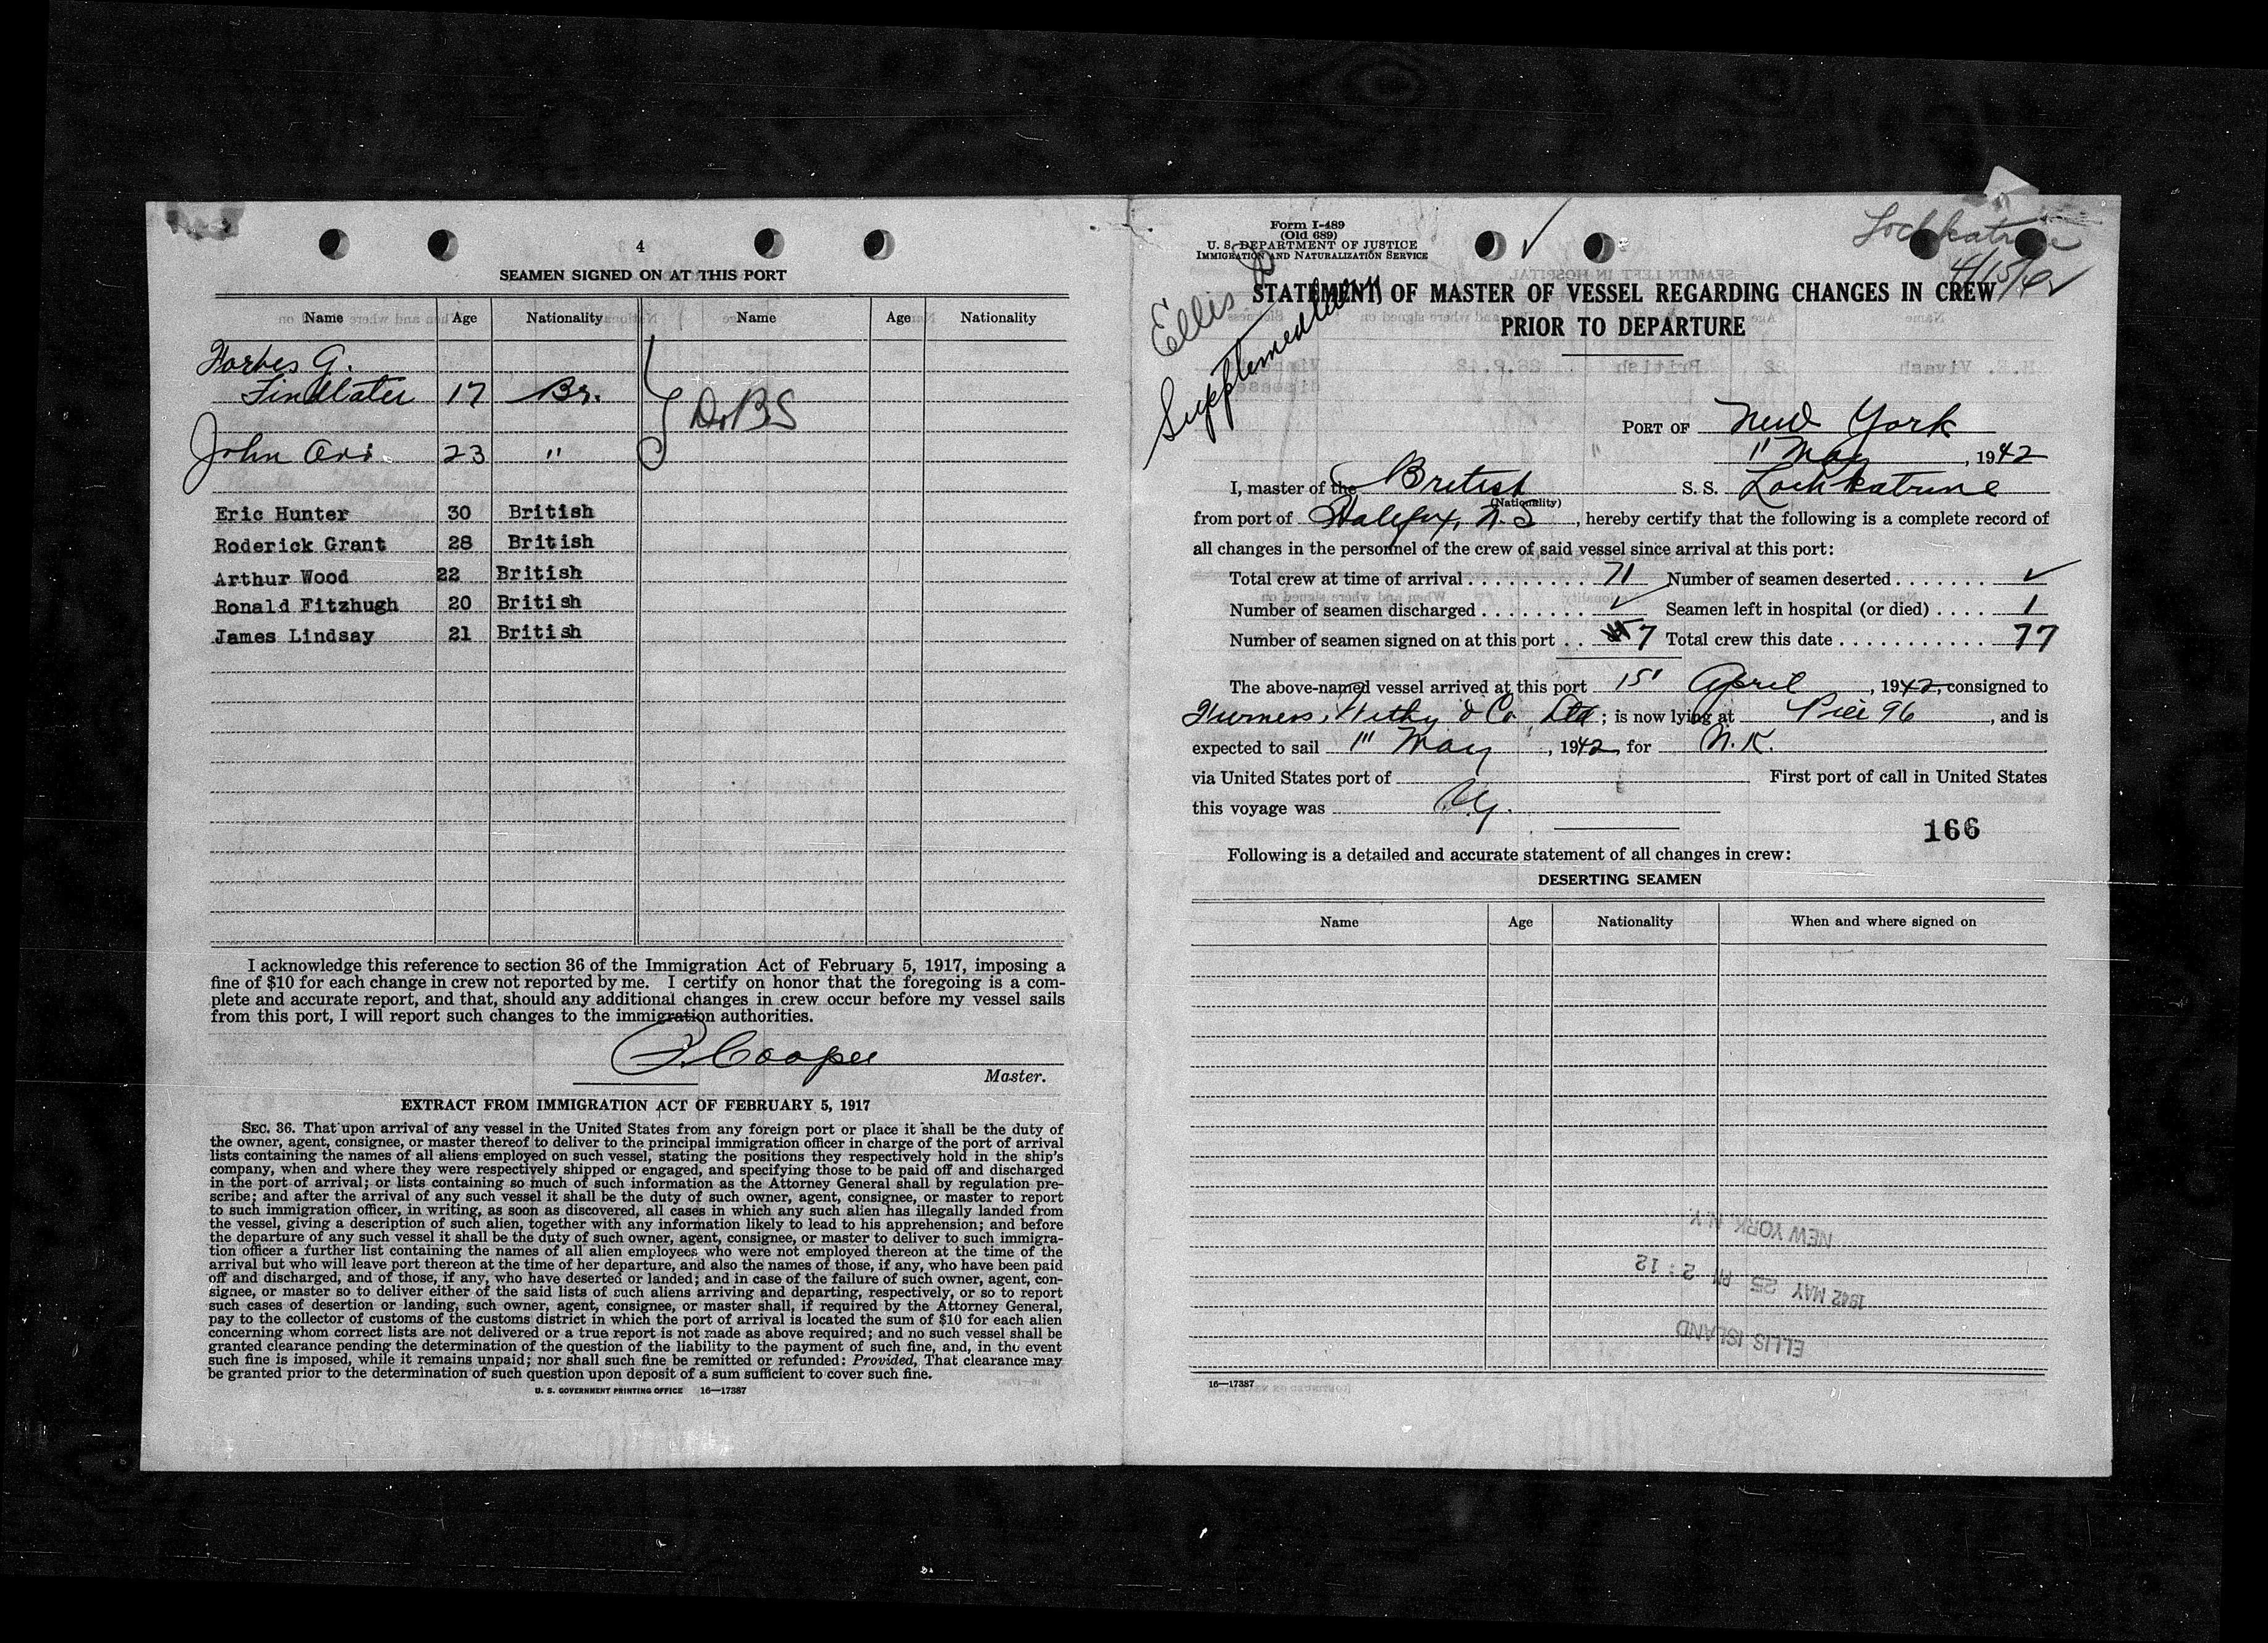 4
SEAMEN SIGNED ON AT THIS PORT
Name Age Nationality Name Age Nationality
Forbes G.
Findlater 17 Br.
D.B.S
John Orr 23 "
Eric Hunter 30 British
Roderick Grant 28 British
Arthur Wood 22 British
Ronald Fitzhugh 20 British
James Lindsay 21 British
I acknowledge this reference to section 36 of the Immigration Act of February 5, 1917, imposing a
fine of $10 for each change in crew not reported by me. I certify on honor that the foregoing is a com-
plete and accurate report, and that, should any additional changes in crew occur before my vessel sails
from this port, I will report such changes to the immigration authorities.
P. Cooper
Master.
EXTRACT FROM IMMIGRATION ACT OF FEBRUARY 5, 1917
SEC. 36. That upon arrival of any vessel in the United States from any foreign port or place it shall be the duty of
the owner, agent, consignee, or master thereof to deliver to the principal immigration officer in charge of the port of arrival
lists containing the names of all aliens employed on such vessel, stating the positions they respectively hold in the ship's
company, when and where they were respectively shipped or engaged, and specifying those to be paid off and discharged
in the port of arrival; or lists containing so much of such information as the Attorney General shall by regulation pre-
scribe; and after the arrival of any such vessel it shall be the duty of such owner, agent, consignee, or master to report
to such immigration officer, in writing, as soon as discovered, all cases in which any such alien has illegally landed from
the vessel, giving a description of such alien, together with any information likely to lead to his apprehension; and before
the departure of any such vessel it shall be the duty of such owner, agent, consignee, or master to deliver to such immigra-
tion officer a further list containing the names of all alien employees who were not employed thereon at the time of the
arrival but who will leave port thereon at the time of her departure, and also the names of those, if any, who have been paid
off and discharged, and of those, if any, who have deserted or landed; and in case of the failure of such owner, agent, con-
signee, or master so to deliver either of the said lists of such aliens arriving and departing, respectively, or so to report
such cases of desertion or landing, such owner, agent, consignee, or master shall, if required by the Attorney General,
pay to the collector of customs of the customs district in which the port of arrival is located the sum of $10 for each alien
concerning whom correct lists are not delivered or a true report is not made as above required; and no such vessel shall be
granted clearance pending the determination of the question of the liability to the payment of such fine, and, in the event
such fine is imposed, while it remains unpaid; nor shall such fine be remitted or refunded: Provided, That clearance may
be granted prior to the determination of such question upon deposit of a sum sufficient to cover such fine.
U. S. GOVERNMENT PRINTING OFFICE 16—17387
Form I-489
(Old 689)
U. S. DEPARTMENT OF JUSTICE
IMMIGRATION AND NATURALIZATION SERVICE
Lochkatrine
4/15/42
Ellis
Supplementary
STATEMENT OF MASTER OF VESSEL REGARDING CHANGES IN CREW
PRIOR TO DEPARTURE
PORT OF New York
11 May, 1942
I, master of the British S. S. Lochkatrine
(Nationality)
from port of Halifax, N.S, hereby certify that the following is a complete record of
all changes in the personnel of the crew of said vessel since arrival at this port:
Total crew at time of arrival 71 Number of seamen deserted ✓
Number of seamen discharged ✓ Seamen left in hospital (or died) 1
Number of seamen signed on at this port 7 Total crew this date 77
The above-named vessel arrived at this port 15 April, 1942, consigned to
Furness, Withy & Co Ltd; is now lying at Pier 96, and is
expected to sail 11 May, 1942, for U.K.
via United States port of First port of call in United States
this voyage was N.Y.
166
Following is a detailed and accurate statement of all changes in crew:
DESERTING SEAMEN
Name Age Nationality When and where signed on
NEW YORK N.Y.
1942 MAY 25 PM 2:12
ELLIS ISLAND
16—17387